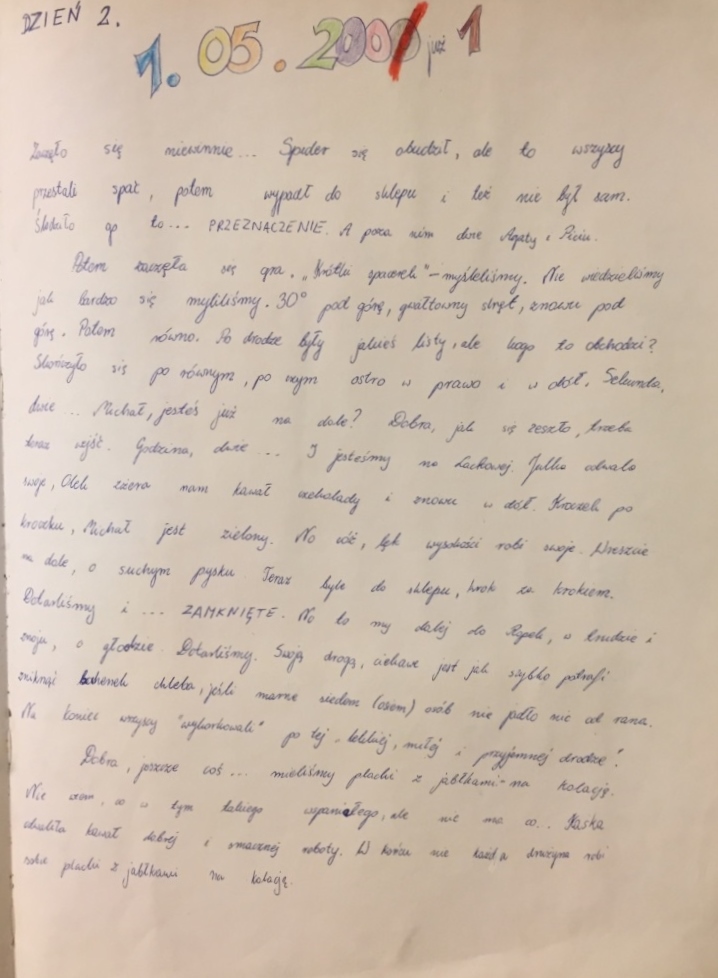 DZIEŃ 2.
1. 05. 2000/ już 1
Zaczęło się niewinnie... Spider się obudził, ale to wszyscy
przestali spać, potem wypadł do sklepu i też nie był sam.
Śledziło go to... PRZEZNACZENIE. A poza nim dwie Agaty i Piciu.
Potem zaczęła się gra. „Krótki spacerek" - myśleliśmy. Nie wiedzieliśmy
jak bardzo się myliliśmy. 30° pod górę, gwałtowny skręt, znowu pod
górę. Potem równo. Po drodze były jakieś listy, ale kogo to obchodzi?
Skończyło się po równym, po czym ostro w prawo i w dół. Sekunda,
dwie... Michał, jesteś już na dole? Dobra, jak się zeszło, trzeba
teraz wyjść. Godzina, dwie... I jesteśmy na Lackowej. Julka odwala
swoje, Olek zżera nam kawał czekolady i znowu w dół. Kroczek po
kroczku, Michał jest zielony. No cóż, lęk wysokości robi swoje. Wreszcie
na dole, o suchym pysku. Teraz byle do sklepu, krok za krokiem.
Dotarliśmy i ... ZAMKNIĘTE. No to my dalej do Ropek, w trudzie i
znoju, o głodzie. Dotarliśmy. Swoją drogą, ciekawe jest jak szybko potrafi
zniknąć bochenek chleba, jeśli marne siedem (osiem) osób nie jadło nic od rana.
Na koniec wszyscy "wykorkowali" po tej „lekkiej, miłej i przyjemnej drodze".
Dobra, jeszcze coś... mieliśmy placki z jabłkami - na kolację.
Nie wiem, co w tym takiego wspaniałego, ale nic ma co... Kaśka
odwaliła kawał dobrej i smacznej roboty. W końcu nie każda drużyna robi
sobie placki z jabłkami na kolację.